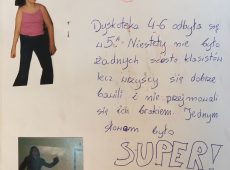 Dyskoteka 4-6 odbyła się
w 5.A. Niestety nie było
żadnych szósto klasistów
lecz wszyscy się dobrze
bawili i nie przejmowali
się ich brakiem. Jednym
słowem było
SUPER!